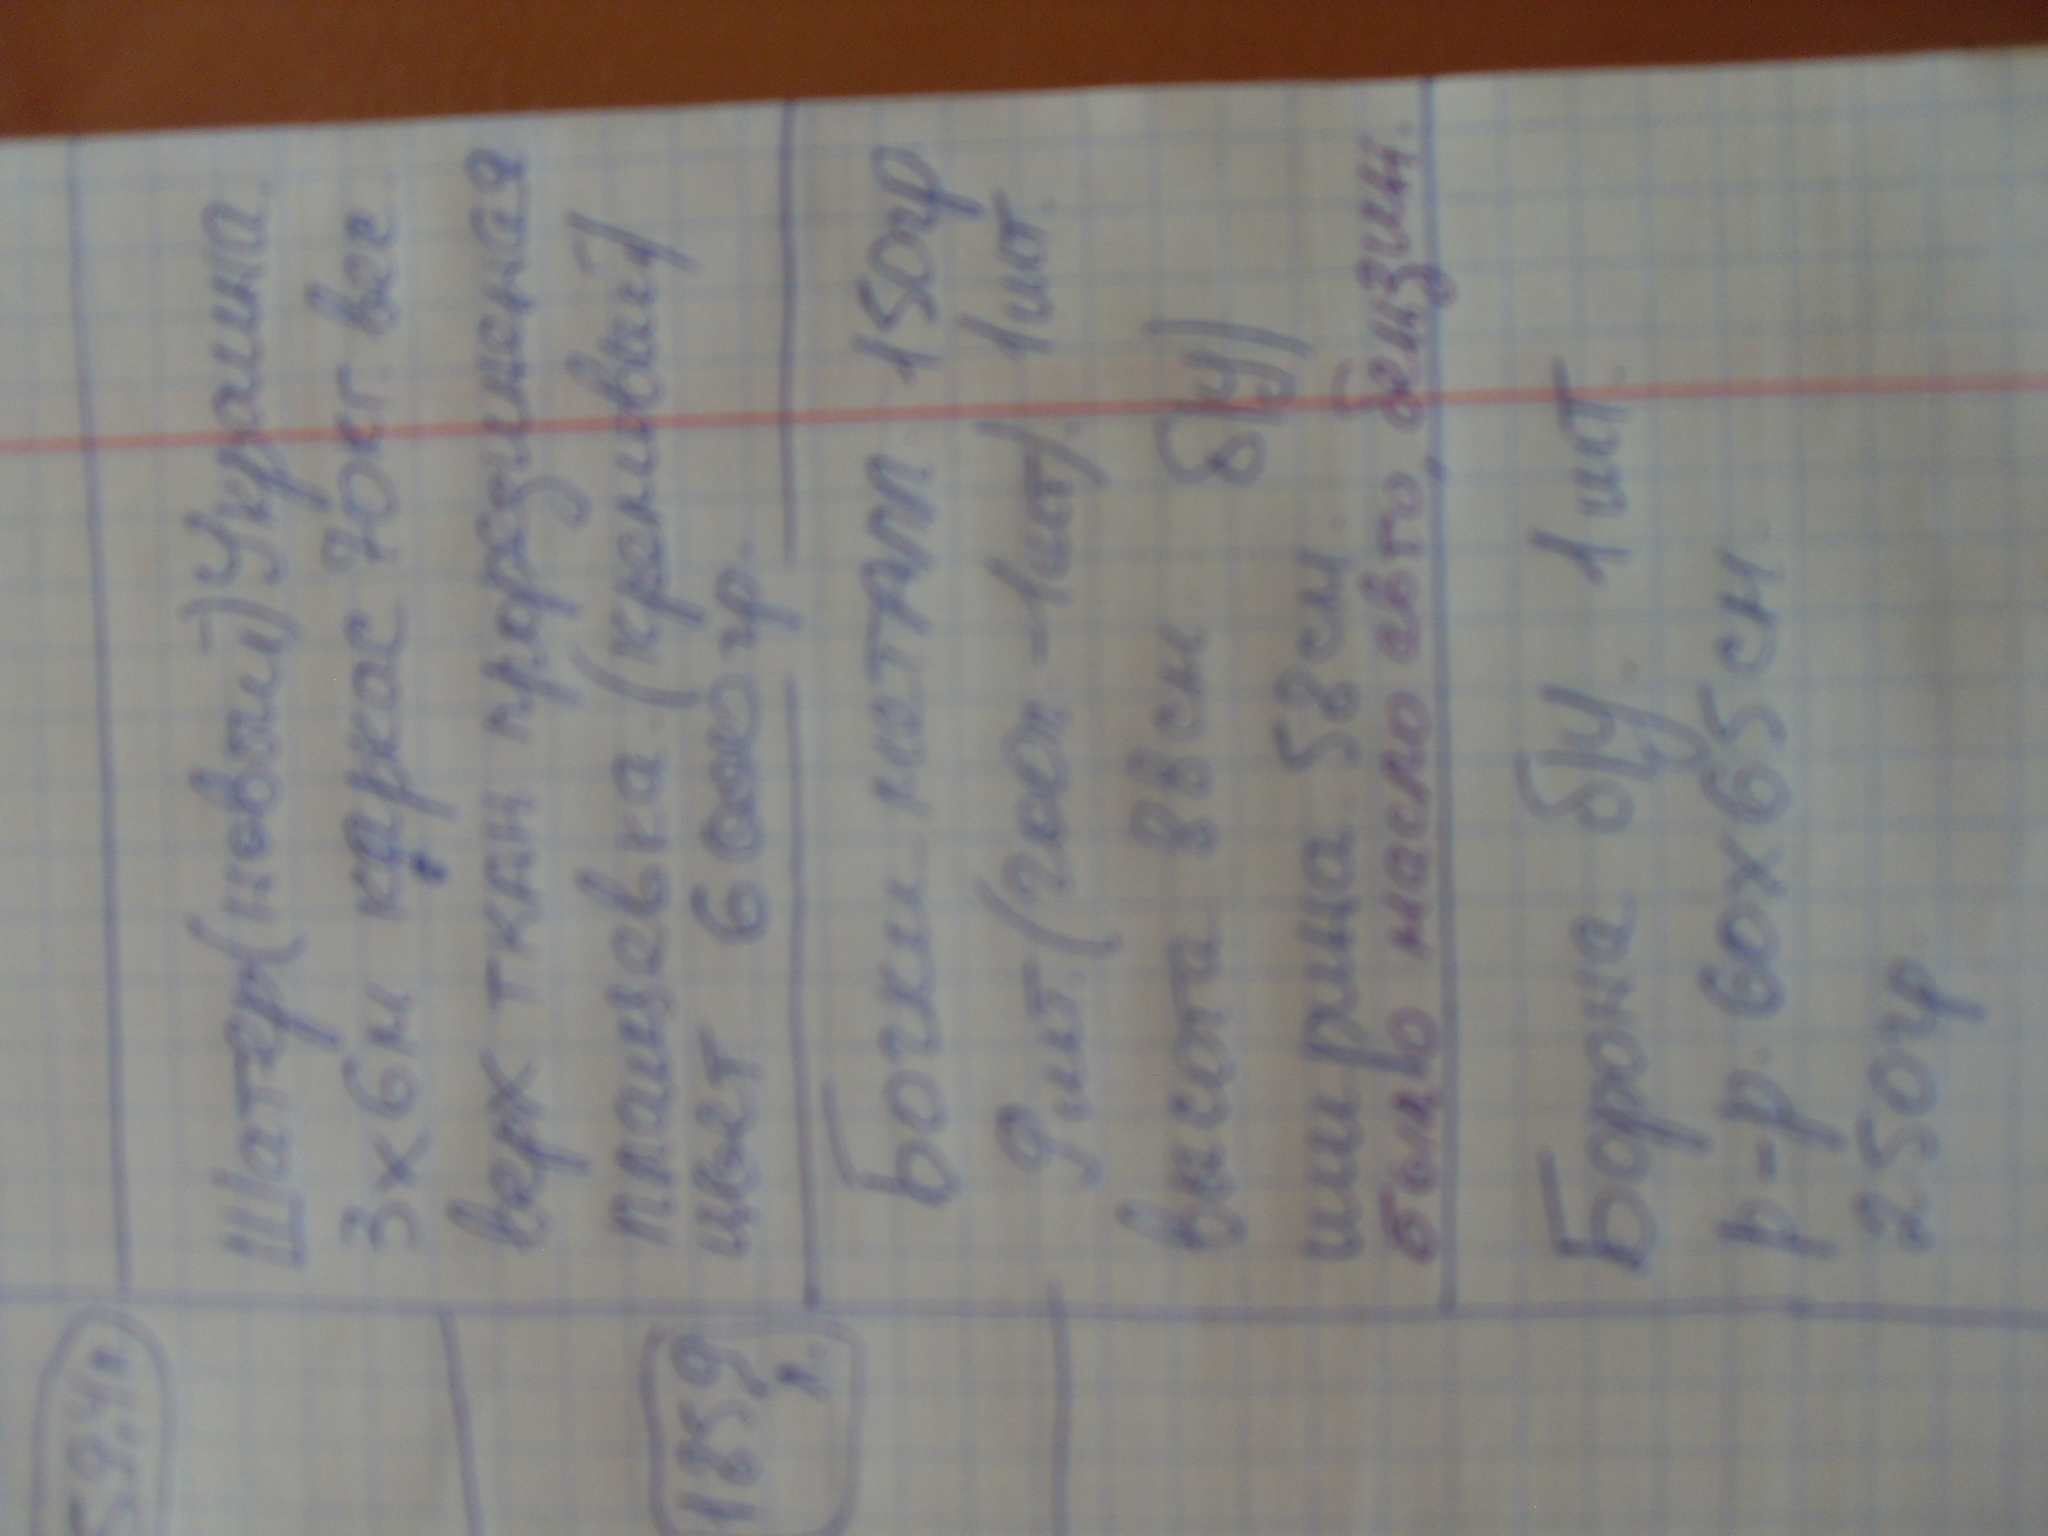 Шатер (новый) Украина.
3х6м каркас 70кг. вес.
верх ткан прорезиненая
плащевка. (кремовый)
цвет 6000гр.
Бочки метал. 150гр
9шт. (200л -1шт). 1шт.
высота 88см б/у)
ширина 58см.
было масло авто, бензин.
Борона б/у. 1шт.
р-р. 60х65см.
250гр.
59.41
1859